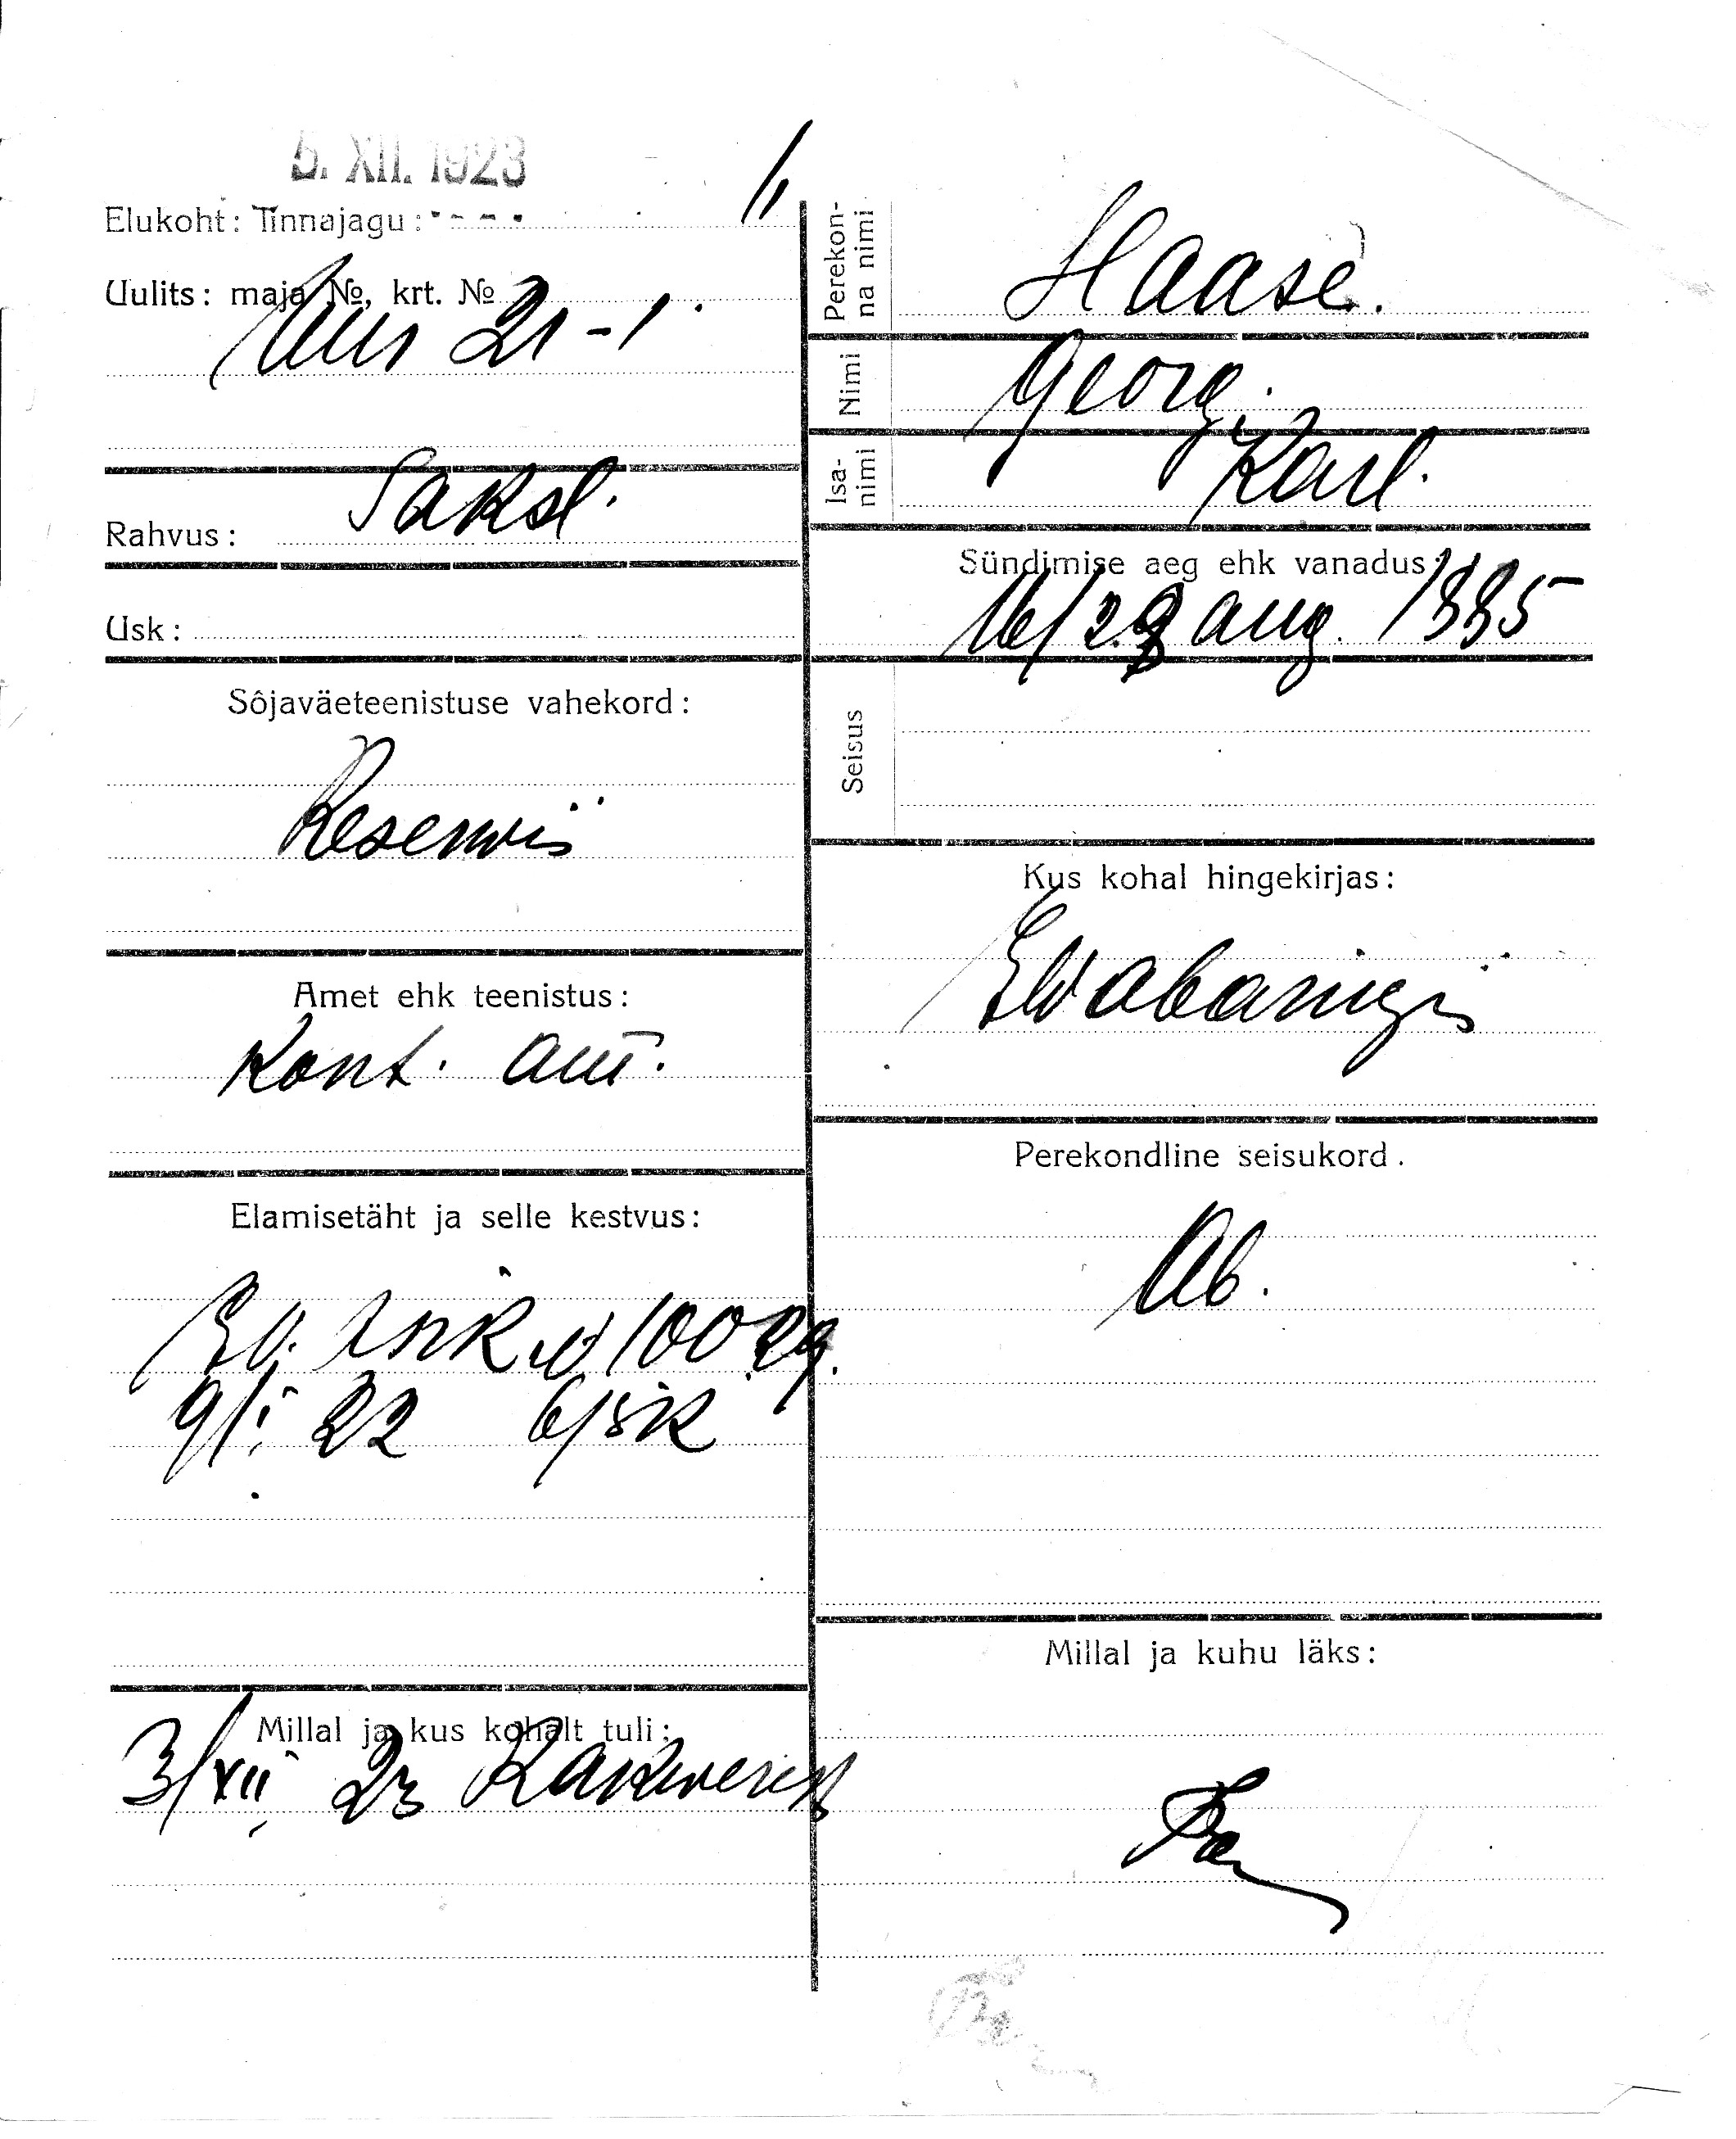 5. XII. 1923
Elukoht: Linnajagu:
Uulits: maja №, krt. №
Uus 21 - 1
Rahvus: Saksl.
Usk:
Sôjaväeteenistuse vahekord:
Reserwis
Amet ehk teenistus:
Kont. am.
Elamisetäht ja selle kestvus:
9/I 22
Millal ja kus kohalt tuli:
3/XII 23 Rakwerest
Perekonna nimi
Haase.
Nimi
Georg.
Isanimi
Karl.
Sündimise aeg ehk vanadus:
16/28 aug. 1885
Seisus
Kus kohal hingekirjas:
E Wabariigis
Perekondline seisukord.
Ab.
Millal ja kuhu läks: